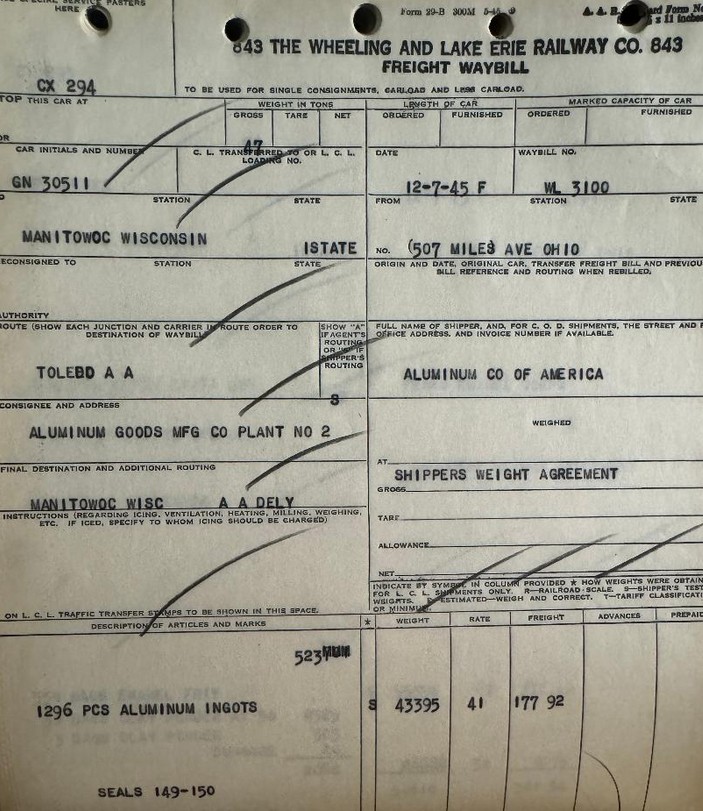 HERE
Form 29-B 300M 5-45
x 11 inches
843 THE WHEELING AND LAKE ERIE RAILWAY CO. 843
FREIGHT WAYBILL
CX 294
TO BE USED FOR SINGLE CONSIGNMENTS, CARLOAD AND LESS CARLOAD.
TOP THIS CAR AT
WEIGHT IN TONS
LENGTH OF CAR
MARKED CAPACITY OF CAR
GROSS TARE NET
ORDERED FURNISHED
ORDERED FURNISHED
47
CAR INITIALS AND NUMBER
C. L. TRANSFERRED TO OR L. C. L.
LOADING NO.
DATE
WAYBILL NO.
GN 30511
12-7-45 F
WL 3100
STATION STATE
FROM STATION STATE
MANITOWOC WISCONSIN
ISTATE
NO. (507 MILES AVE OHIO
ECONSIGNED TO STATION STATE
ORIGIN AND DATE, ORIGINAL CAR, TRANSFER FREIGHT BILL AND PREVIOU
BILL REFERENCE AND ROUTING WHEN REBILLED.
AUTHORITY
OUTE (SHOW EACH JUNCTION AND CARRIER IN ROUTE ORDER TO
DESTINATION OF WAYBILL
SHOW "A"
IF AGENT'S
ROUTING
OR "S" IF
SHIPPER'S
ROUTING
FULL NAME OF SHIPPER, AND, FOR C. O. D. SHIPMENTS, THE STREET AND P
OFFICE ADDRESS. AND INVOICE NUMBER IF AVAILABLE.
TOLEBD A A
S
ALUMINUM CO OF AMERICA
CONSIGNEE AND ADDRESS
ALUMINUM GOODS MFG CO PLANT NO 2
WEIGHED
FINAL DESTINATION AND ADDITIONAL ROUTING
AT
SHIPPERS WEIGHT AGREEMENT
GROSS
MANITOWOC WISC A A DELY
INSTRUCTIONS (REGARDING ICING, VENTILATION, HEATING, MILLING, WEIGHING,
ETC. IF ICED, SPECIFY TO WHOM ICING SHOULD BE CHARGED)
TARE
ALLOWANCE
NET
INDICATE BY SYMBOL IN COLUMN PROVIDED * HOW WEIGHTS WERE OBTAIN
FOR L. C. L. SHIPMENTS ONLY. R—RAILROAD SCALE. S—SHIPPER'S TEST
WEIGHTS. E—ESTIMATED—WEIGH AND CORRECT. T—TARIFF CLASSIFICATI
OR MINIMUM.
ON L. C. L. TRAFFIC TRANSFER STAMPS TO BE SHOWN IN THIS SPACE.
DESCRIPTION OF ARTICLES AND MARKS * WEIGHT RATE FREIGHT ADVANCES PREPAID
523
1296 PCS ALUMINUM INGOTS S 43395 41 177 92
SEALS 149-150